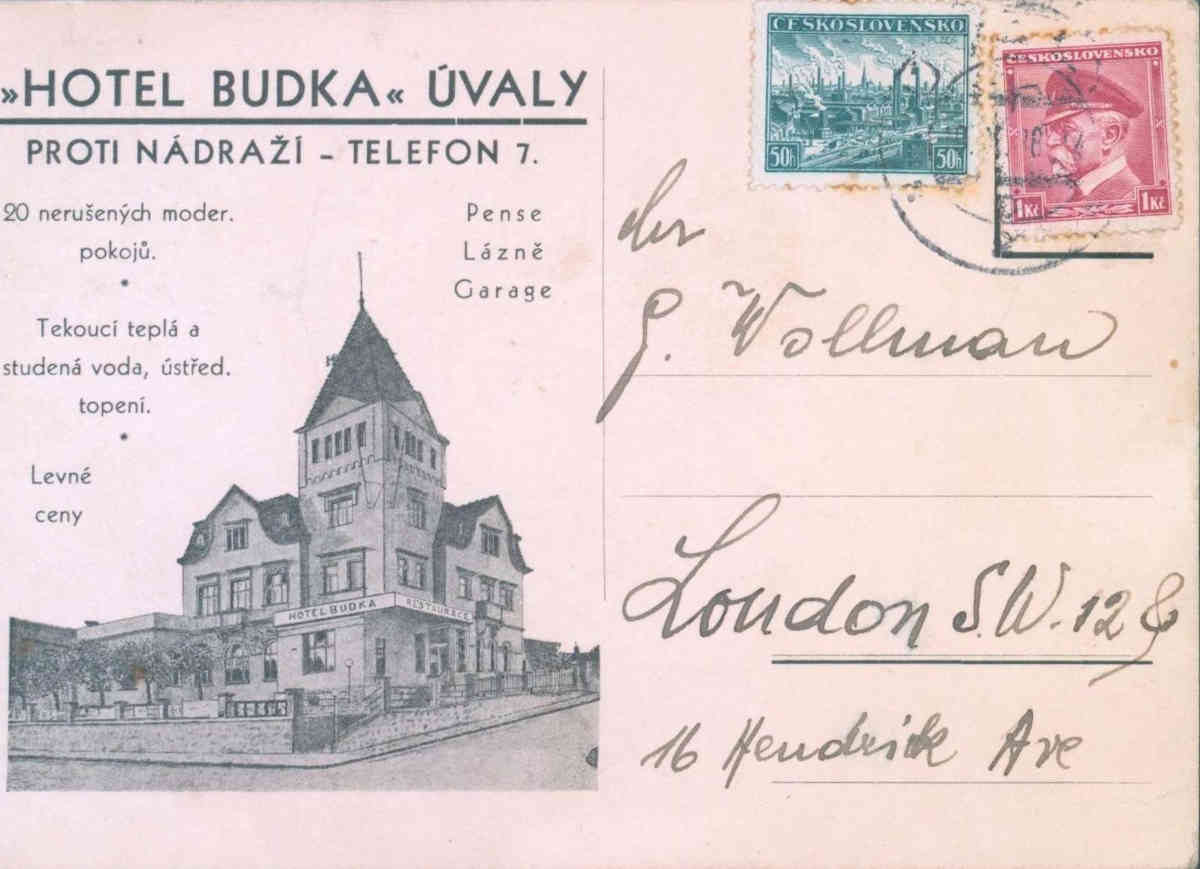 »HOTEL BUDKA« ÚVALY
PROTI NÁDRAŽÍ – TELEFON 7.
20 nerušených moder.
pokojů.
•
Tekoucí teplá a
studená voda, ústřed.
topení.
•
Levné
ceny
Pense
Lázně
Garage
HOTEL BUDKA
RESTAURACE
ČESKOSLOVENSKO
50h 50h
ČESKOSLOVENSKO
1Kč 1Kč
G. Wollman
London S.W. 12
16 Hendrick Ave